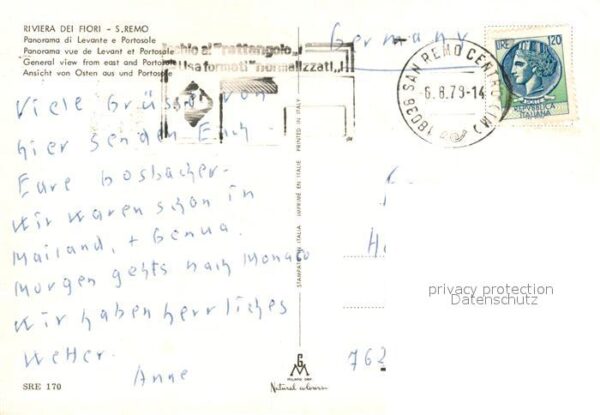 RIVIERA DEI FIORI - S.REMO
Panorama di Levante e Portosole
Panorama vue de Levant et Portosole
General view from east and Portosole
Ansicht von Osten aus und Portosole
"rattangolo"
Usa formati "normalizzati"
Germany
18038 SAN REMO CENTRO (IM)
6.8.79-14
LIRE 120
REPVBBLICA
ITALIANA
Viele Grüsse von
hier senden Euch
Eure Gosbacher.
Wir waren schon in
Mailand, + Genua.
Morgen gehts nach Monaco
Wir haben herrliches
Wetter.
Anne
STAMPATO IN ITALIA IMPRIMÉ EN ITALIE PRINTED IN ITALY
762
privacy protection
Datenschutz
SRE 170
Natural colour